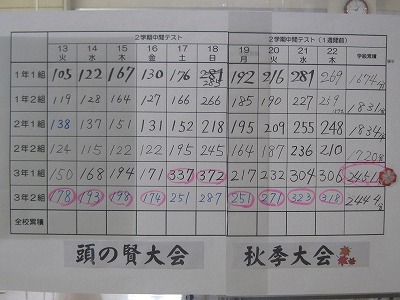 2学期中間テスト 2学期中間テスト（1週間前） 学級累積
13 14 15 16 17 18 19 20 21 22
火 水 木 金 土 日 月 火 水 木
1年1組 105 122 167 130 176 281 192 216 281 269 1674
1年2組 119 128 164 127 166 266 185 190 227 1831
2年1組 138 137 151 131 152 218 195 209 255 248 1834
2年2組 124 115 122 122 195 245 164 187 236 210 1720
3年1組 150 168 194 171 337 372 217 232 304 306 2451
3年2組 178 193 198 174 251 287 251 271 323 318 2444
全校累積
頭の賢大会 秋季大会